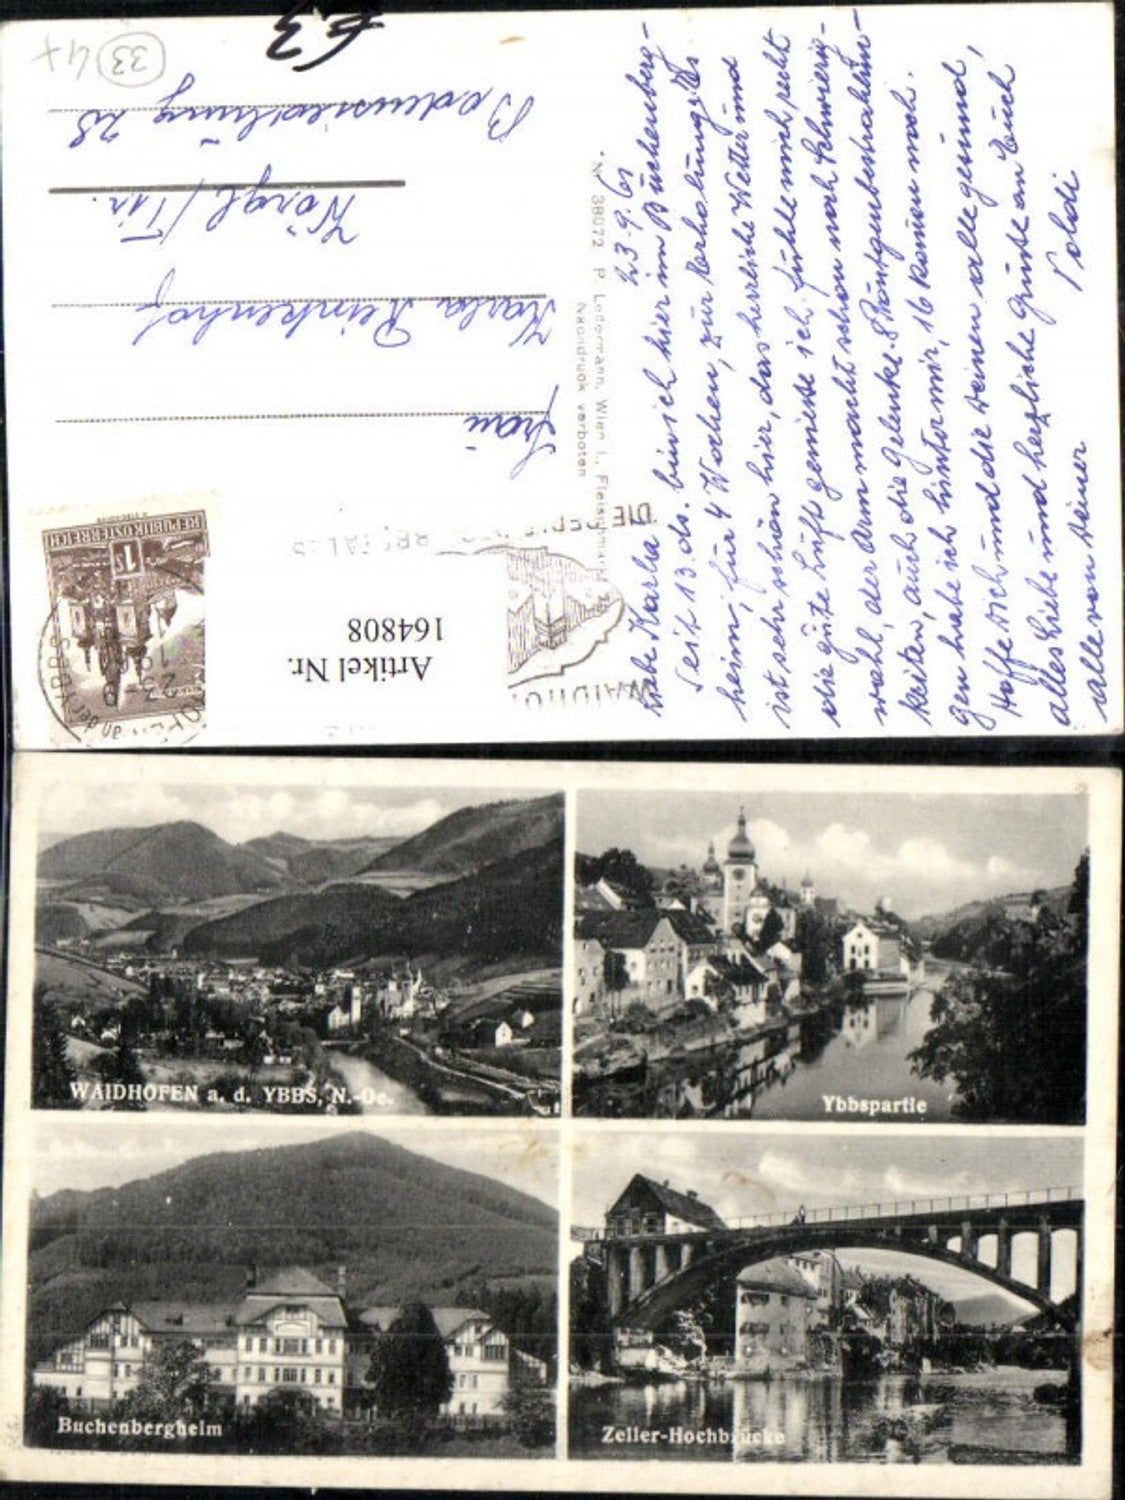 23.9.61
Liebe Karla! bin ich hier im Buchenberg-
Seit 13. ds.
heim, für 4 Wochen, zur Erholung. Es
ist sehr schön hier, das herrliche Wetter und
die gute Luft genieße ich. fühle mich recht
wohl, der Arm macht schon noch Schwierig-
keiten, auch die Gelenke. 8 Röntgenbestrahlun-
gen habe ich hinter mir, 16 kommen noch.
Hoffe Dich und die Deinen alle gesund,
alles Liebe und herzliche Grüße an Euch
alle von Deiner
Poldi
Nr. 38072 P. Ledermann, Wien I., Fleischmarkt
Nachdruck verboten
Frau
Karla Reinkenhof
Wörgl / Tir.
Bodensiedlung 28
33 4x
£3
REPUBLIK ÖSTERREICH
1 S
an der YBBS
WAIDHO
DIE
Artikel Nr.
164808
WAIDHOFEN a. d. YBBS, N.-Oe.
Ybbspartie
Buchenbergheim
Zeller-Hochbrücke